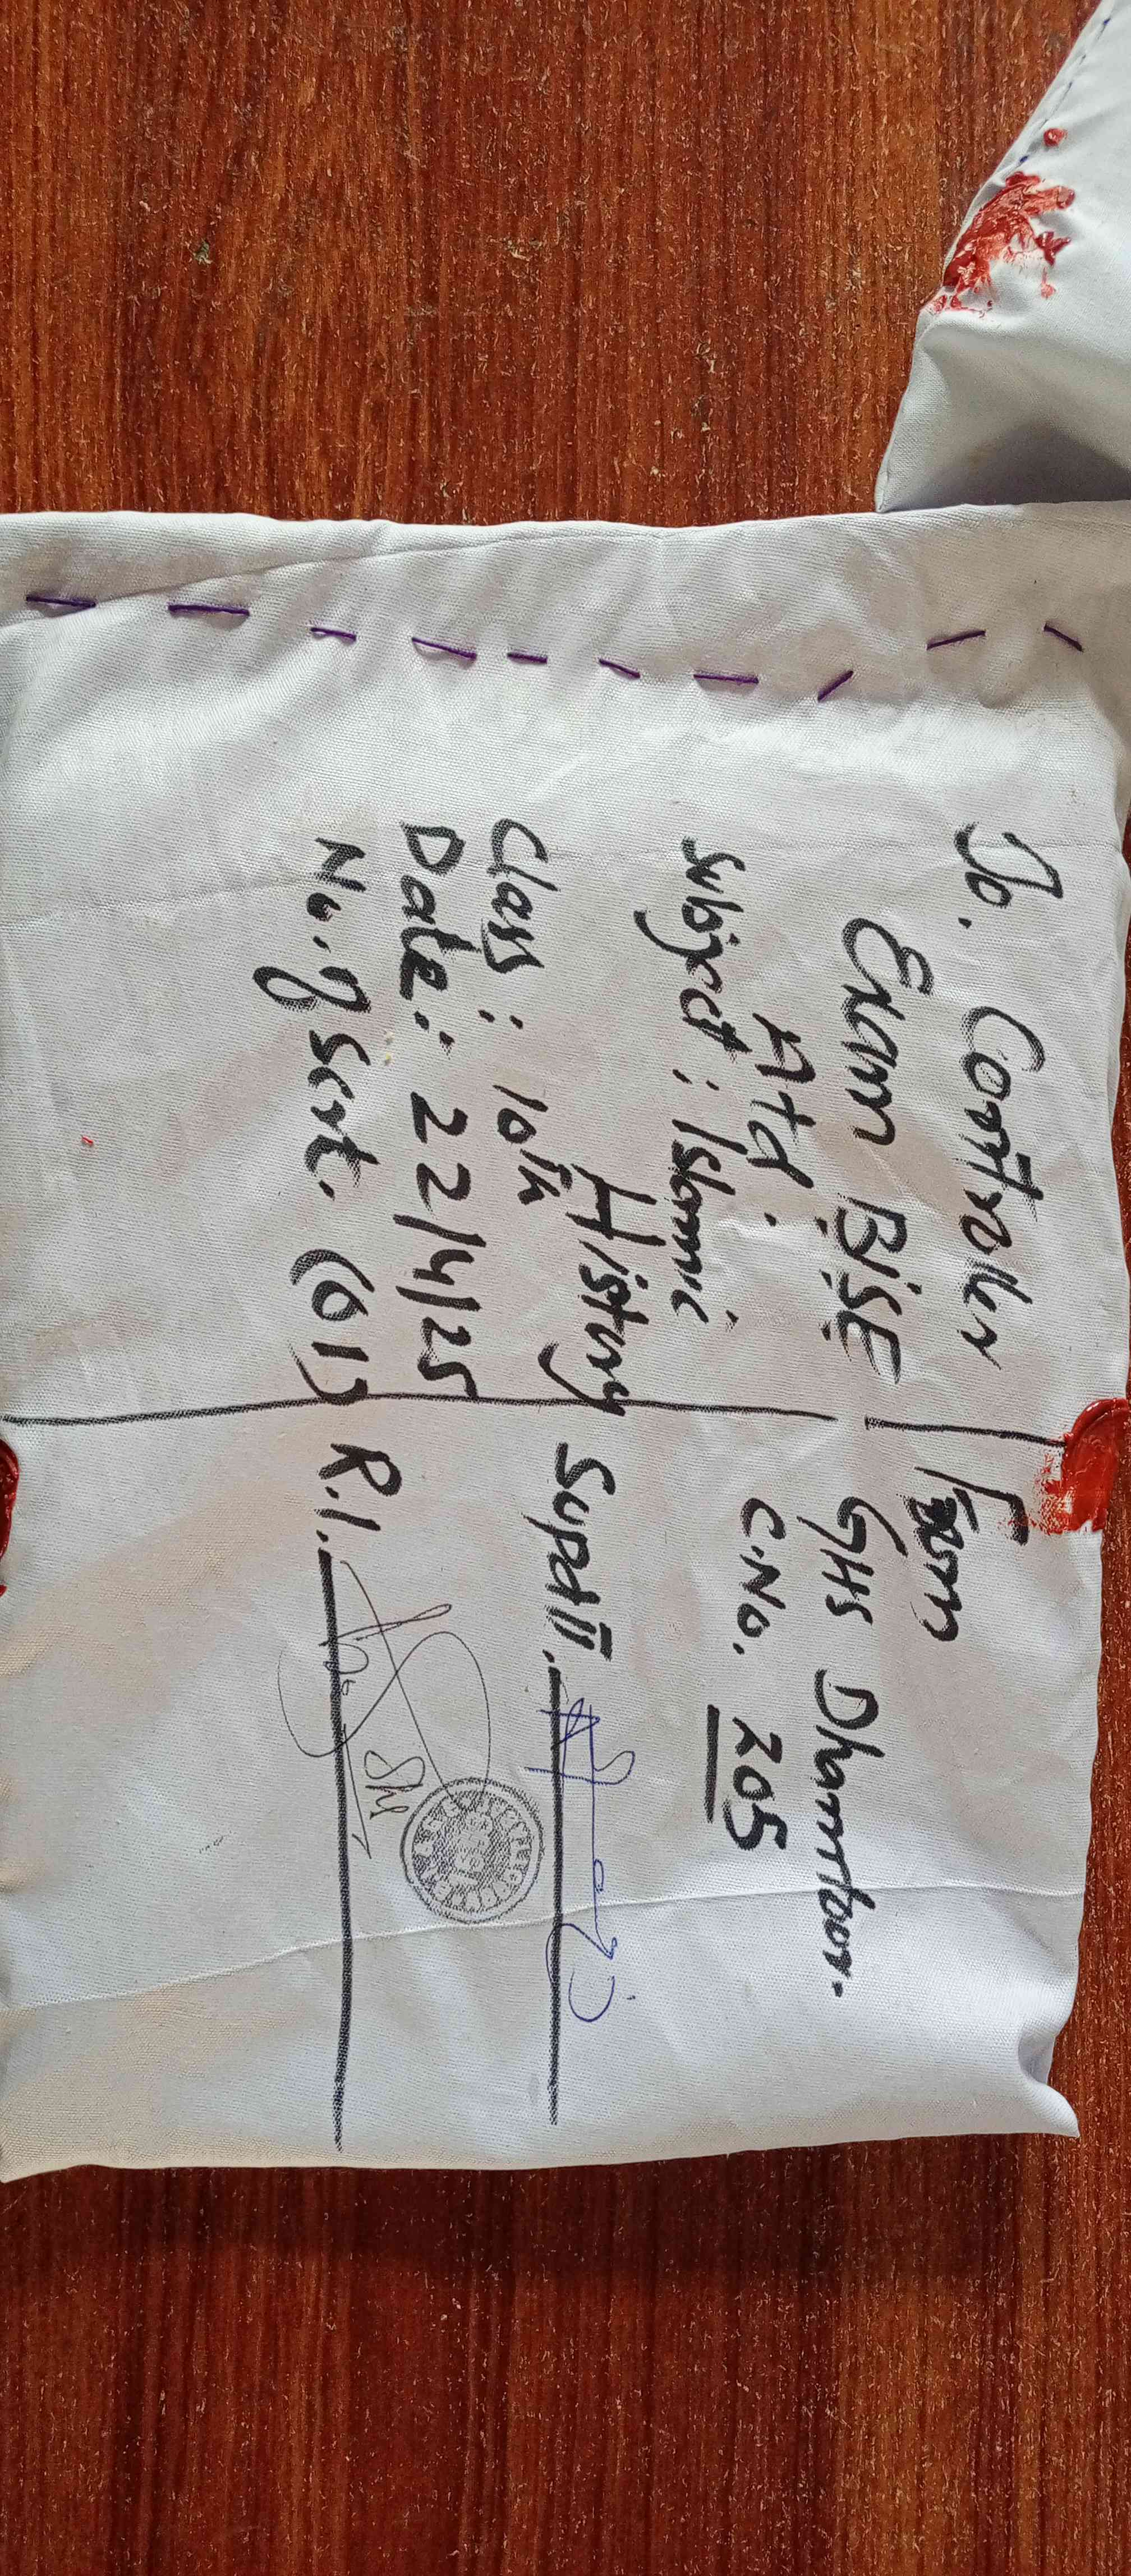 To. Controller
Exam BISE
Atd.
Subject: Islamic
History
Class: 10th
Date: 22/4/25
No. of Scrt. (01)
From
GHS Dhamtoor.
C.No. 205
Supdtt.
R.I.